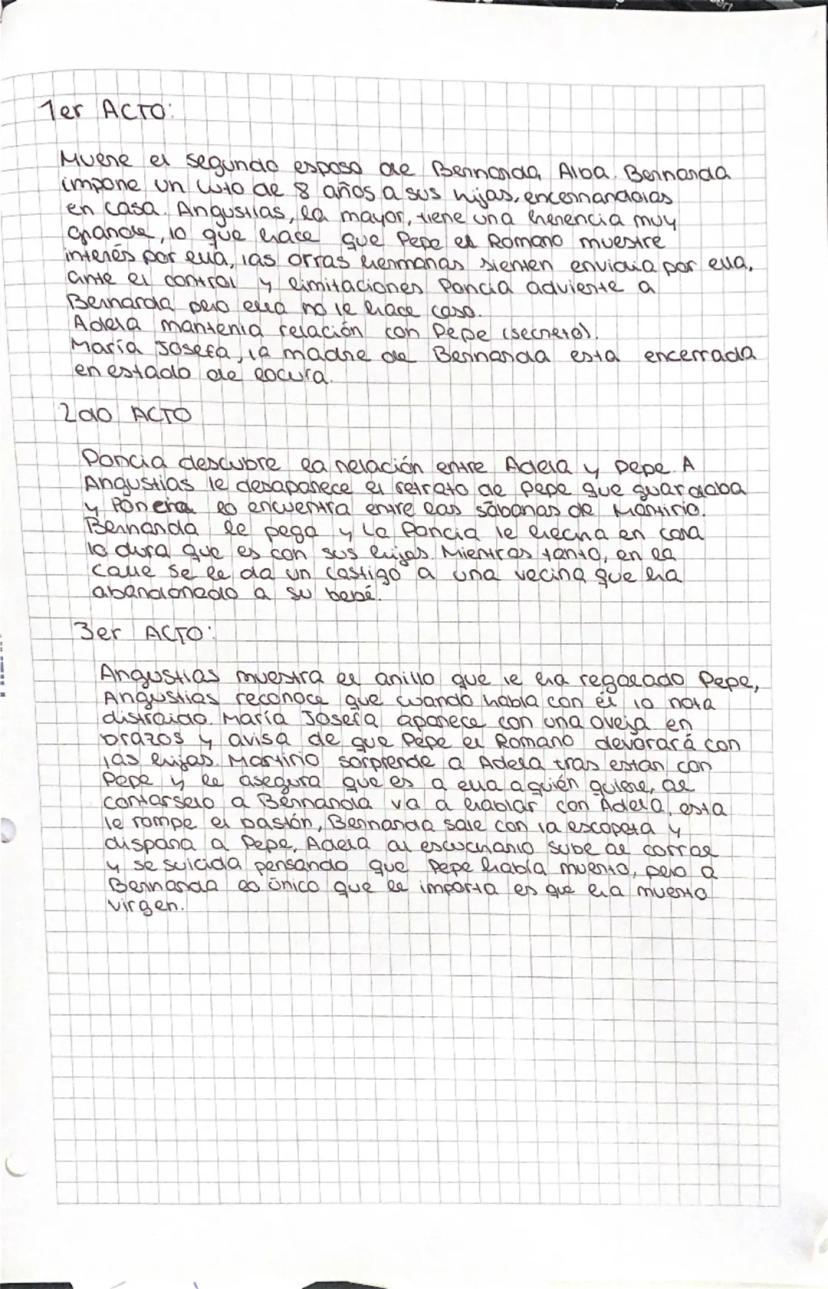 1er ACTO:
Muere el segundo esposo de Bernarda Alba. Bernarda
impone un luto de 8 años a sus hijas, encerrandolas
en casa. Angustias, la mayor, tiene una herencia muy
grande, lo que hace que Pepe el Romano muestre
interés por ella, las otras hermanas sienten envidia por ella,
ante el control y limitaciones Poncia advierte a
Bernarda pero ella no le hace caso.
Adela mantenia relación con Pepe (secreto).
María Josefa, la madre de Bernarda esta encerrada
en estado de locura.
2do ACTO
Poncia descubre la relación entre Adela y Pepe. A
Angustias le desaparece el retrato de Pepe que guardaba
y Poncia lo encuentra entre las sábanas de Martirio.
Bernarda le pega y La Poncia le hecha en cara
lo dura que es con sus hijas. Mientras tanto, en la
calle se le da un castigo a una vecina que ha
abandonado a su bebé.
3er ACTO:
Angustias muestra el anillo que le ha regalado Pepe,
Angustias reconoce que cuando habla con él lo nota
distraido. María Josefa aparece con una oveja en
brazos y avisa de que Pepe el Romano devorará con
las hijas. Martirio sorprende a Adela tras estar con
Pepe y le asegura que es a ella a quién quiere, al
contarselo a Bernarda va a hablar con Adela, esta
le rompe el bastón, Bernarda sale con la escopeta y
dispara a Pepe, Adela al escucharlo sube al corral
y se suicida pensando que Pepe había muerto, pero a
Bernarda lo único que le importa es que ha muerto
virgen.